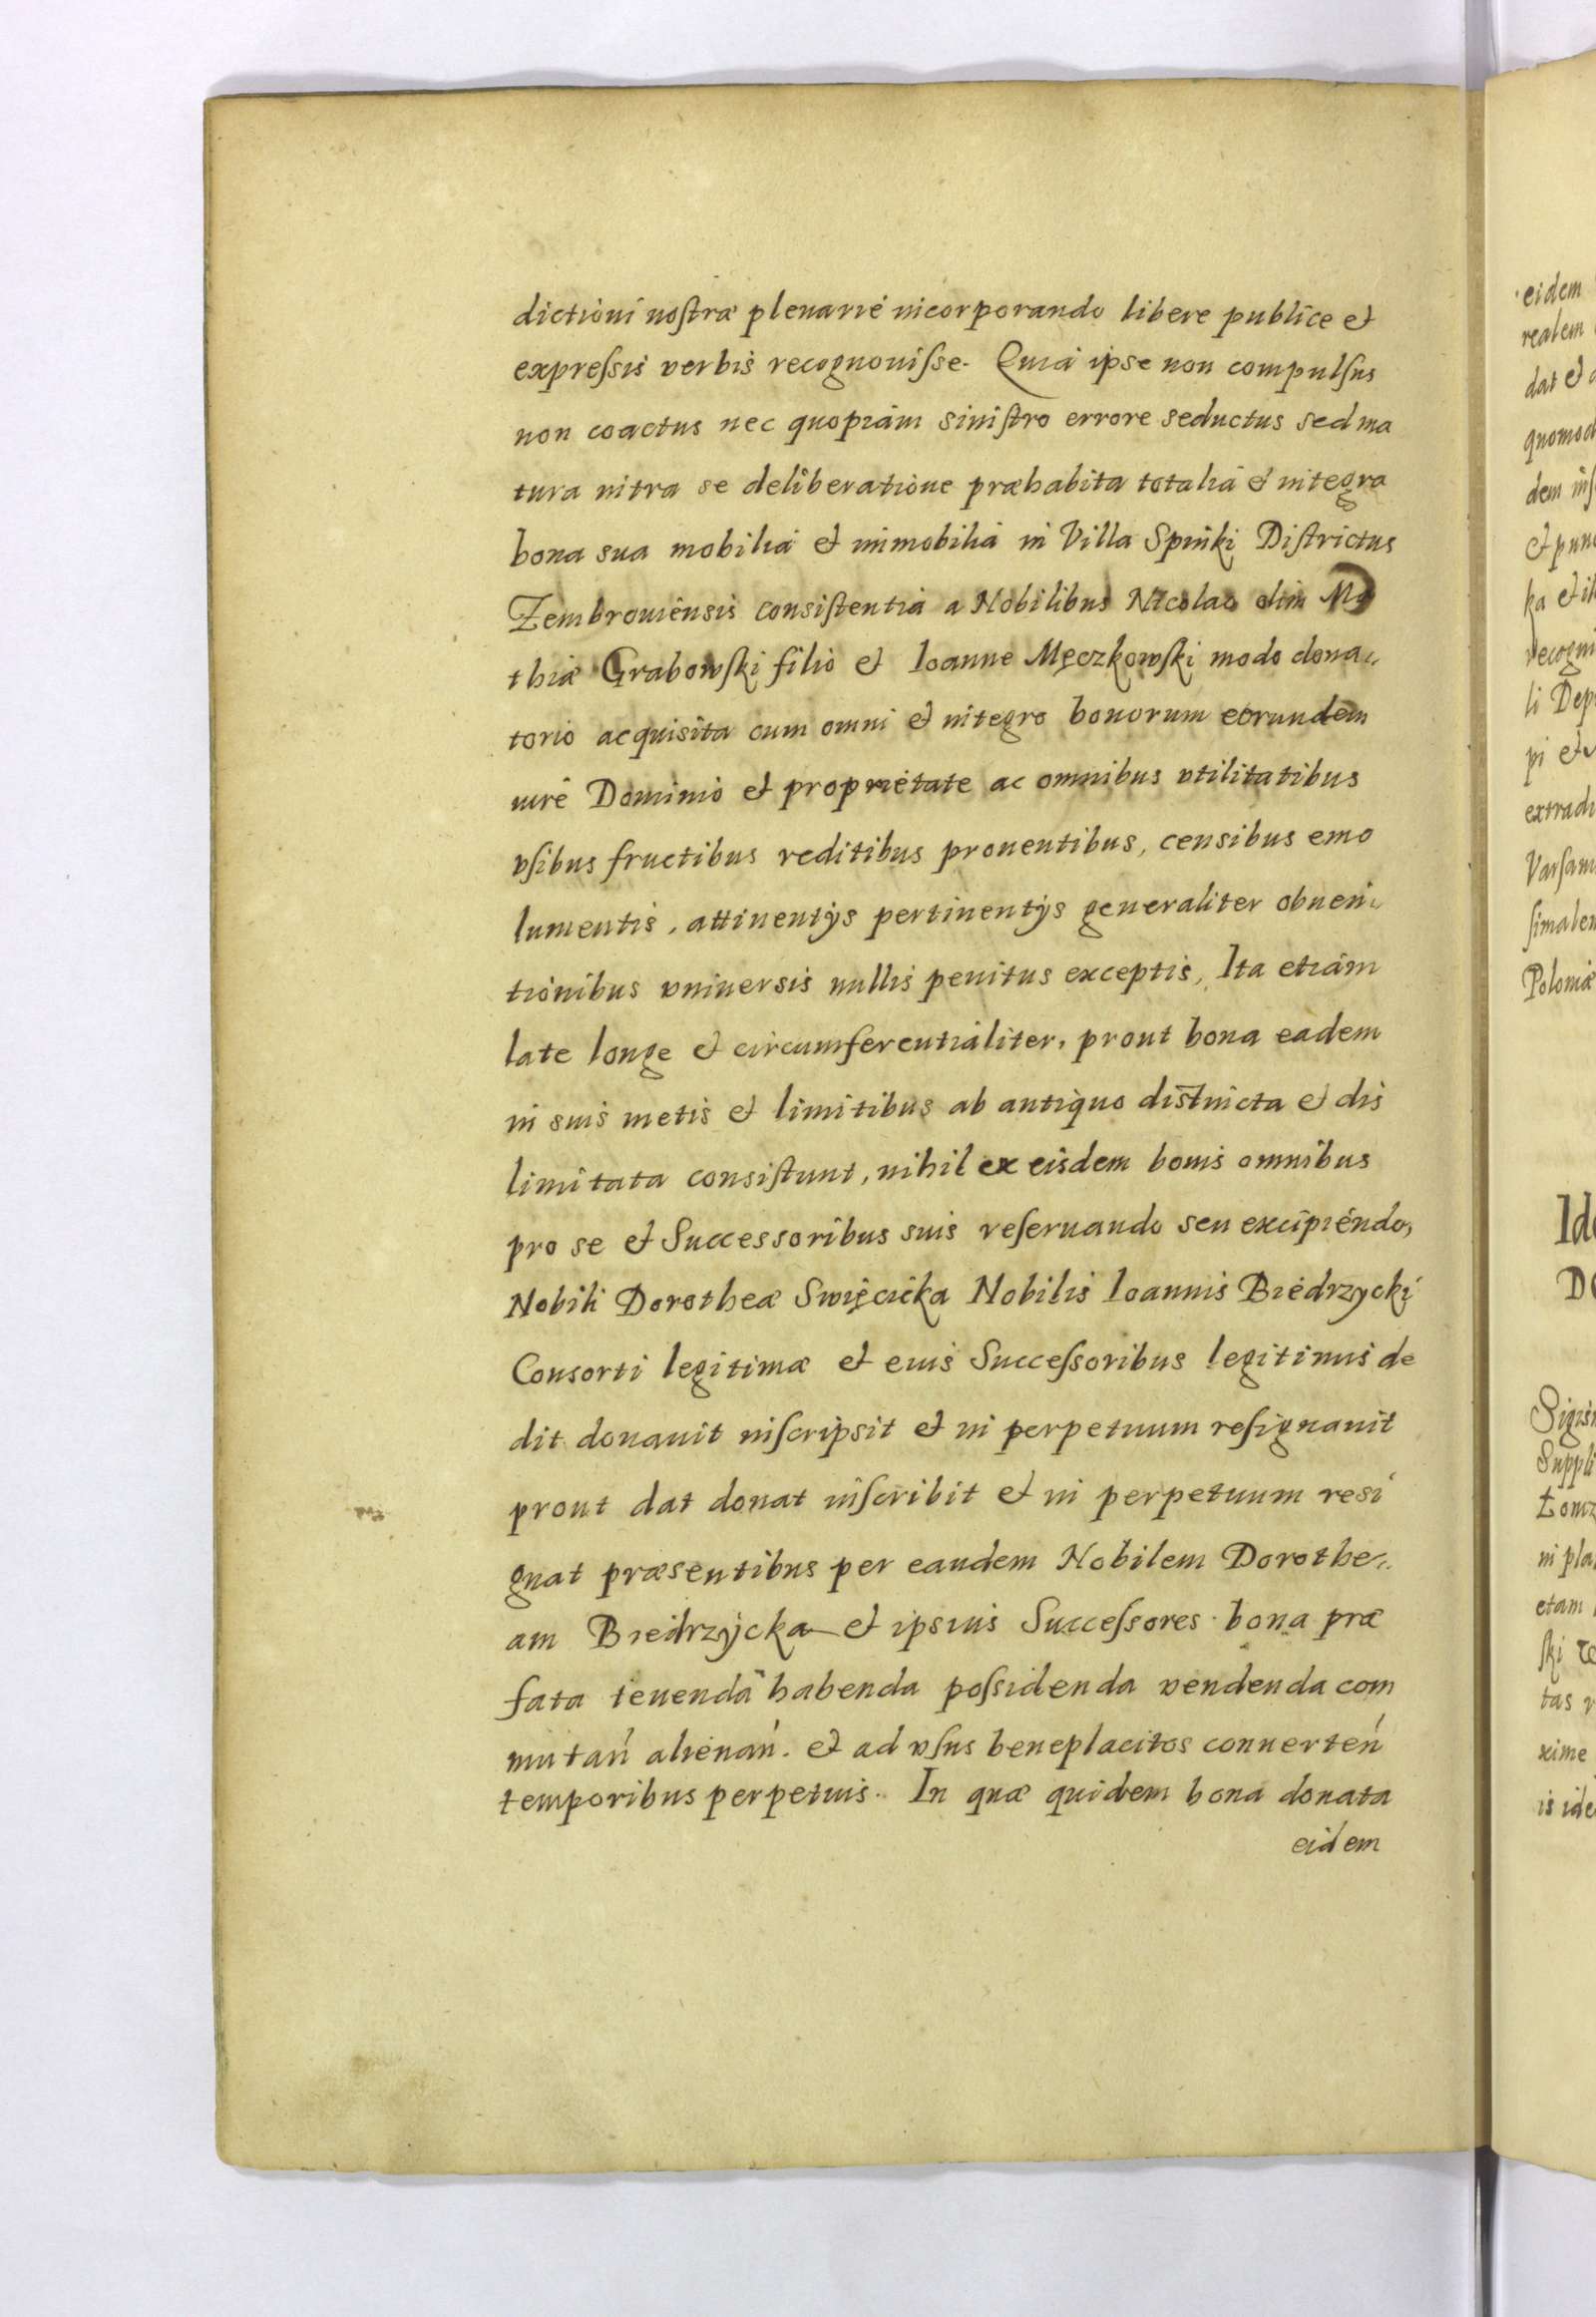 dictioni nostræ plenarié incorporando libere publice et
expressis verbis recognouisse. Quia ipse non compulsus
non coactus nec quopiam sinistro errore seductus sed ma
tura intra se deliberatione præhabita totalia et integra
bona sua mobilia et immobilia in Villa Spinki Districtus
Zembrouiensis consistentia a Nobilibus Nicolao olim Ma
thiæ Grabowski filio et Ioanne Męczkowski modo dona„
torio acquisita cum omni et integro bonorum eorundem
iure Dominio et proprietate ac omnibus vtilitatibus
vsibus fructibus reditibus prouentibus, censibus emo
lumentis, attinentÿs pertinentÿs generaliter obuen„
tionibus vniuersis nullis penitus exceptis, Ita etiam
late longe et circumferentialiter, prout bona eadem
in suis metis et limitibus ab antiquo distincta et dis
limitata consistunt, nihil ex eisdem bonis omnibus
pro se et Successoribus suis reseruando seu excipiendo,
Nobili Dorotheæ Swięcicka Nobilis Ioannis Biedrzycki
Consorti legitimæ et eius Successoribus legitimis de
dit donauit inscripsit et in perpetuum resignauit
prout dat donat inscribit et in perpetuum resi
gnat præsentibus per eandem Nobilem Dorothe„
am Biedrzÿcka et ipsius Successores bona præ
fata tenenda habenda possidenda vendenda com
mutań alienań. et ad vsus beneplacitos conuerteń
temporibus perpetuis. In quæ quidem bona donata
eidem
eidem
realem
dat et
quomod
dem
et
ka et
recogni
li Dep
pi et
extradi
Varsau
simalem
Poloniæ
Ide
Do
Sigis
Suppli
Łomz
in pla
etam
ski
tas
xime
is ide